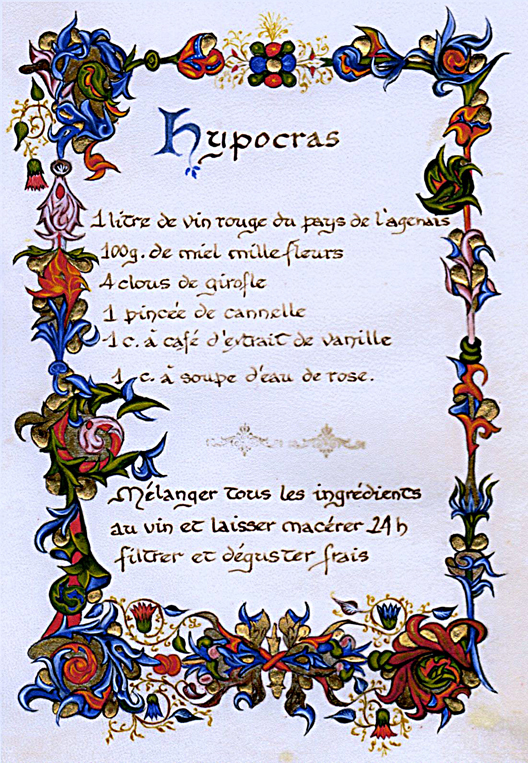 Hypocras
1 litre de vin rouge du pays de l'agenais
100g. de miel mille-fleurs
4 clous de girofle
1 pincée de cannelle
1 c. à café d'extrait de vanille
1 c. à soupe d'eau de rose.
Mélanger tous les ingrédients
au vin et laisser macérer 24 h
filtrer et déguster frais